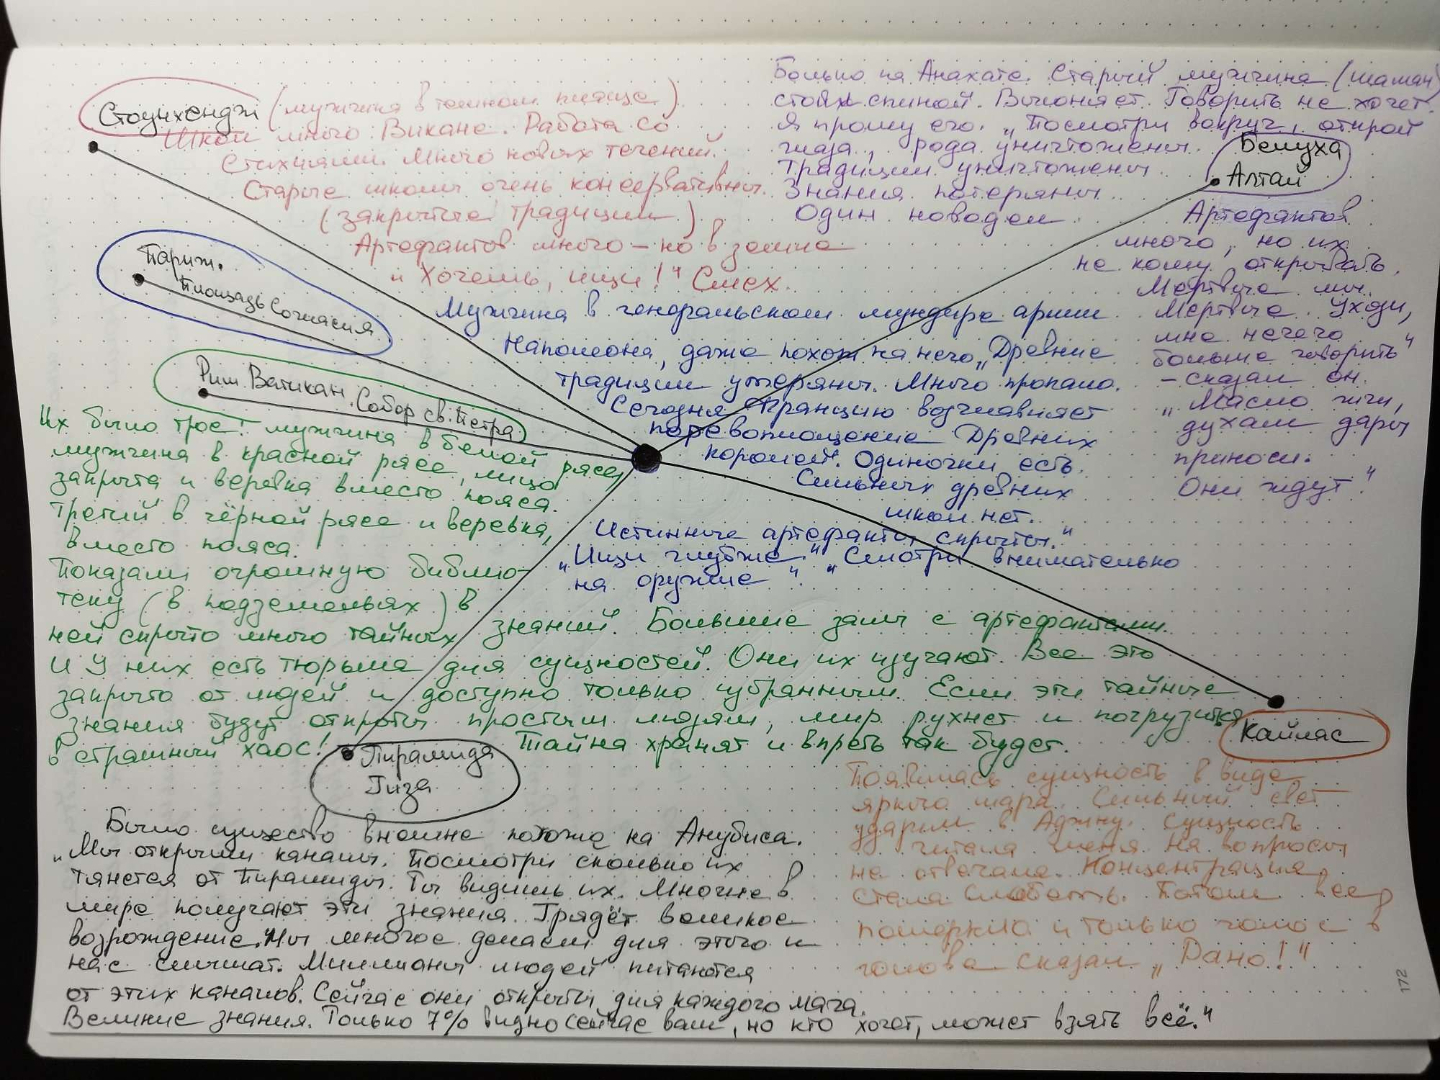 Стоунхендж (мужчина в темном плаще)
Школ много. Викане. Работа со
стихиями. Много новых течений.
Старые школы очень консервативны.
(закрытые традиции)
Артефактов много – но в земле
и Хочешь, ищи!" Смех.
Больно на Анахате. Старый мужчина (шаман)
стоял спиной. Выгоняет. Говорить не хочет.
Я прошу его. „Посмотри вокруг, открой
глаза, рода уничтожены.
Традиции уничтожены
Знания потеряны.
Один новодел
Белуха
Алтай
Артефактов
много, но их
не кому открывать.
Мертвые мы.
Мертвые. Уходи,
мне нечего
больше говорить"
– сказал он.
„Масло жги,
духам дары
приноси.
Они ждут"
Париж.
Площадь Согласия
Мужчина в генеральском мундире армии
Наполеона, даже похож на него „Древние
традиции утеряны. Много пропало.
Сегодня Францию возглавляет
перевоплощение Древних
королей. Одиночки есть.
Сильных древних
школ нет.
Истинные артефакты скрыты."
„Ищи глубже" „Смотри внимательно
на оружие"
Рим. Ватикан. Собор св. Петра
Их было трое! мужчина в белой рясе,
мужчина в красной рясе, лицо
закрыто и веревка вместо пояса.
Третий в чёрной рясе и веревка,
вместо пояса.
Показали огромную библио-
теку (в подземельях) в
ней скрыто много тайных знаний. Большие залы с артефактами.
И у них есть тюрьма для сущностей. Они их изучают. Все это
закрыто от людей и доступно только избранным. Если эти тайные
знания будут открыты простым людям, мир рухнет и погрузится
в страшный хаос! Тайна хранят и впреть так будет.
Пирамида
Гиза
Было существо внешне похоже на Анубиса.
„Мы открыли каналы. Посмотри сколько их
тянется от Пирамиды. Ты видишь их. Многие в
мире получают эти знания. Грядёт великое
возрождение. Мы многое делаем для этого и
нас слышат. Миллионы людей питаются
от этих каналов. Сейчас они открыты для каждого мага.
Великие знания. Только 7% видно сейчас вам, но кто хочет, может взять всё."
Кайлас
Появилась сущность в виде
яркого шара. Сильный свет
ударил в Аджну. Сущность
читала меня. На вопросы
не отвечала. Концентрация
стала слабеть. Потом все
померкло и только голос в
голове сказал „Рано!"
172